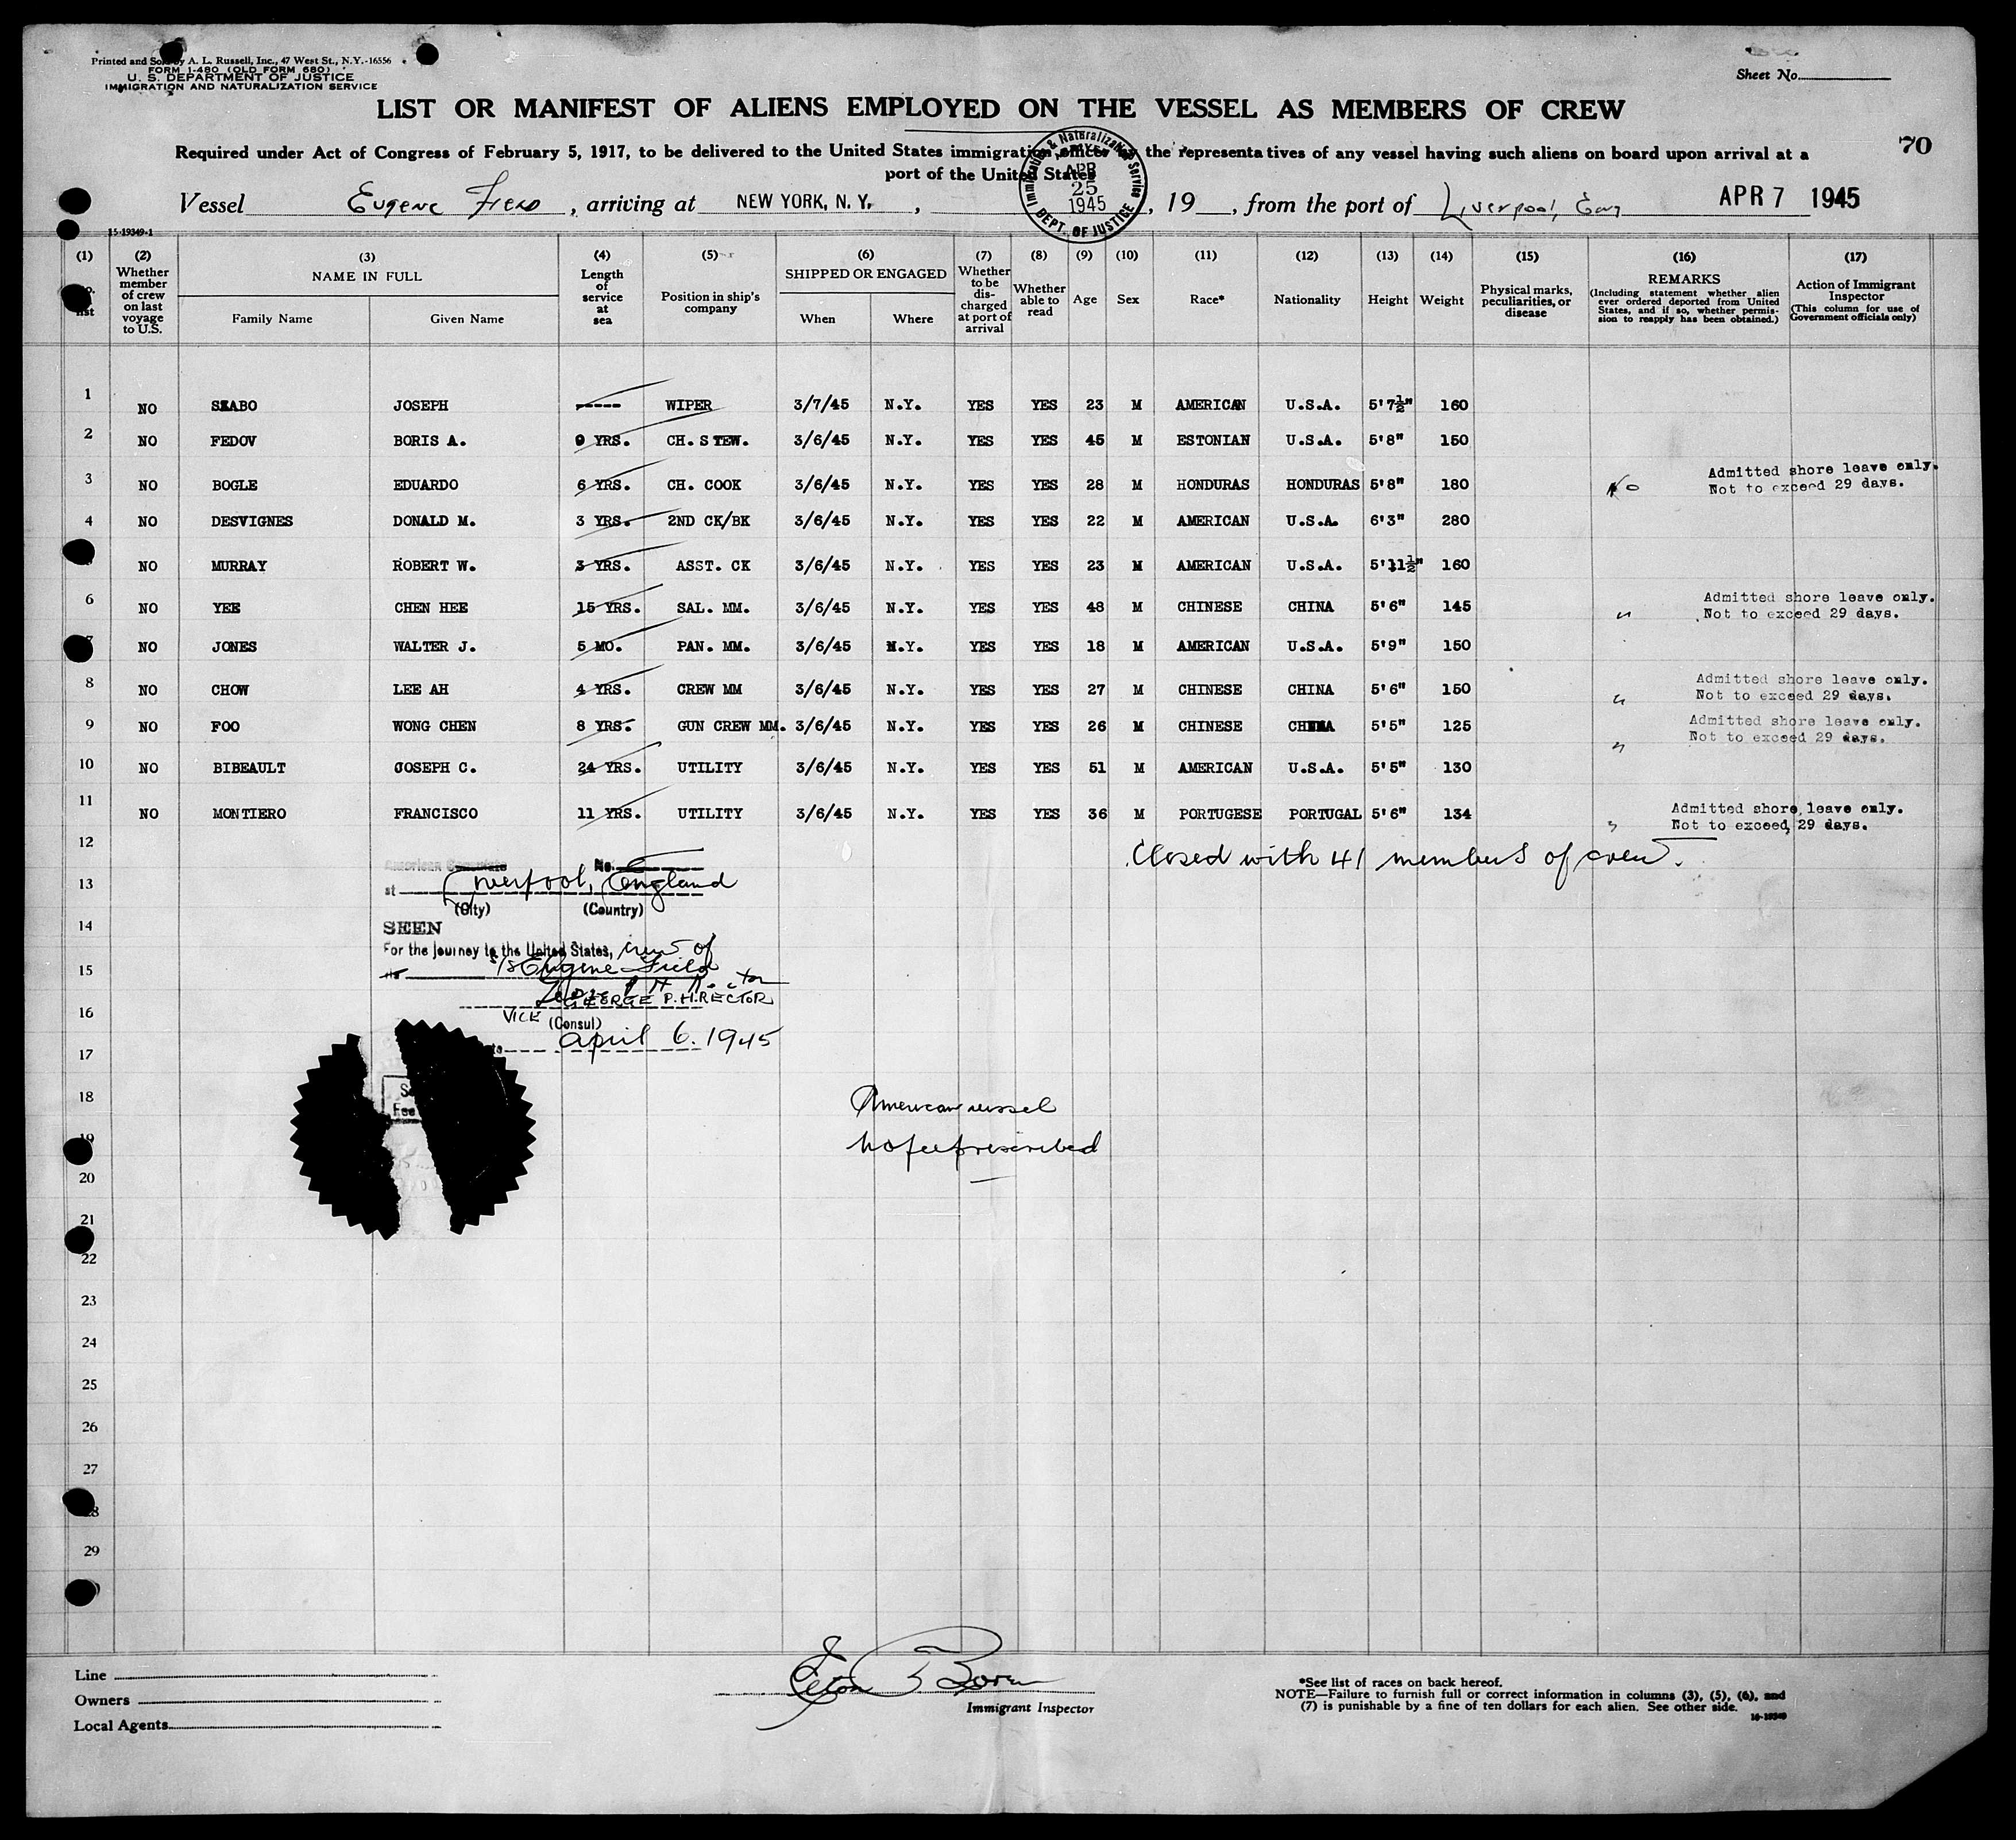 Printed and Sold by A. L. Russell, Inc., 47 West St., N.Y.-16556
FORM I-480 (OLD FORM 680)
U. S. DEPARTMENT OF JUSTICE
IMMIGRATION AND NATURALIZATION SERVICE
Sheet No.
LIST OR MANIFEST OF ALIENS EMPLOYED ON THE VESSEL AS MEMBERS OF CREW
70
Required under Act of Congress of February 5, 1917, to be delivered to the United States immigration officer the representatives of any vessel having such aliens on board upon arrival at a
port of the United States
Immigration & Naturalization Service
APR
25
1945
DEPT. OF JUSTICE
Vessel Eugene Field, arriving at NEW YORK, N. Y., , 19 , from the port of Liverpool, Eng APR 7 1945
15-19349-1
(1) (2) Whether member of crew on last voyage to U.S. (3) NAME IN FULL Family Name Given Name (4) Length of service at sea (5) Position in ship's company (6) SHIPPED OR ENGAGED When Where (7) Whether to be discharged at port of arrival (8) Whether able to read (9) Age (10) Sex (11) Race* (12) Nationality (13) Height (14) Weight (15) Physical marks, peculiarities, or disease (16) REMARKS (Including statement whether alien ever ordered deported from United States, and if so, whether permission to reapply has been obtained.) (17) Action of Immigrant Inspector (This column for use of Government officials only)
1 NO SZABO JOSEPH ----- WIPER 3/7/45 N.Y. YES YES 23 M AMERICAN U.S.A. 5'7½" 160
2 NO FEDOV BORIS A. 9 YRS. CH. STEW. 3/6/45 N.Y. YES YES 45 M ESTONIAN U.S.A. 5'8" 150
3 NO BOGLE EDUARDO 6 YRS. CH. COOK 3/6/45 N.Y. YES YES 28 M HONDURAS HONDURAS 5'8" 180 No Admitted shore leave only. Not to exceed 29 days.
4 NO DESVIGNES DONALD M. 3 YRS. 2ND CK/BK 3/6/45 N.Y. YES YES 22 M AMERICAN U.S.A. 6'3" 280
NO MURRAY ROBERT W. 3 YRS. ASST. CK 3/6/45 N.Y. YES YES 23 M AMERICAN U.S.A. 5'11½" 160
6 NO YEE CHEN HEE 15 YRS. SAL. MM. 3/6/45 N.Y. YES YES 48 M CHINESE CHINA 5'6" 145 " Admitted shore leave only. Not to exceed 29 days.
7 NO JONES WALTER J. 5 MO. PAN. MM. 3/6/45 N.Y. YES YES 18 M AMERICAN U.S.A. 5'9" 150
8 NO CHOW LEE AH 4 YRS. CREW MM 3/6/45 N.Y. YES YES 27 M CHINESE CHINA 5'6" 150 " Admitted shore leave only. Not to exceed 29 days.
9 NO FOO WONG CHEN 8 YRS. GUN CREW MM. 3/6/45 N.Y. YES YES 26 M CHINESE CHINA 5'5" 125 " Admitted shore leave only. Not to exceed 29 days.
10 NO BIBEAULT JOSEPH C. 24 YRS. UTILITY 3/6/45 N.Y. YES YES 51 M AMERICAN U.S.A. 5'5" 130
11 NO MONTIERO FRANCISCO 11 YRS. UTILITY 3/6/45 N.Y. YES YES 36 M PORTUGESE PORTUGAL 5'6" 134 " Admitted shore leave only. Not to exceed 29 days.
12
Closed with 41 members of crew.
American Consulate No.
13
at Liverpool, England
(City) (Country)
14
SEEN
For the journey to the United States, crew of
15
SS Eugene Field
GEORGE P. H. RECTOR
16
VICE (Consul)
April 6. 1945
17
18
American vessel
19
no fee prescribed
20
21
22
23
24
25
26
27
28
29
Line
Owners
Local Agents
Immigrant Inspector
*See list of races on back hereof.
NOTE—Failure to furnish full or correct information in columns (3), (5), (6), and
(7) is punishable by a fine of ten dollars for each alien. See other side.
16-19349